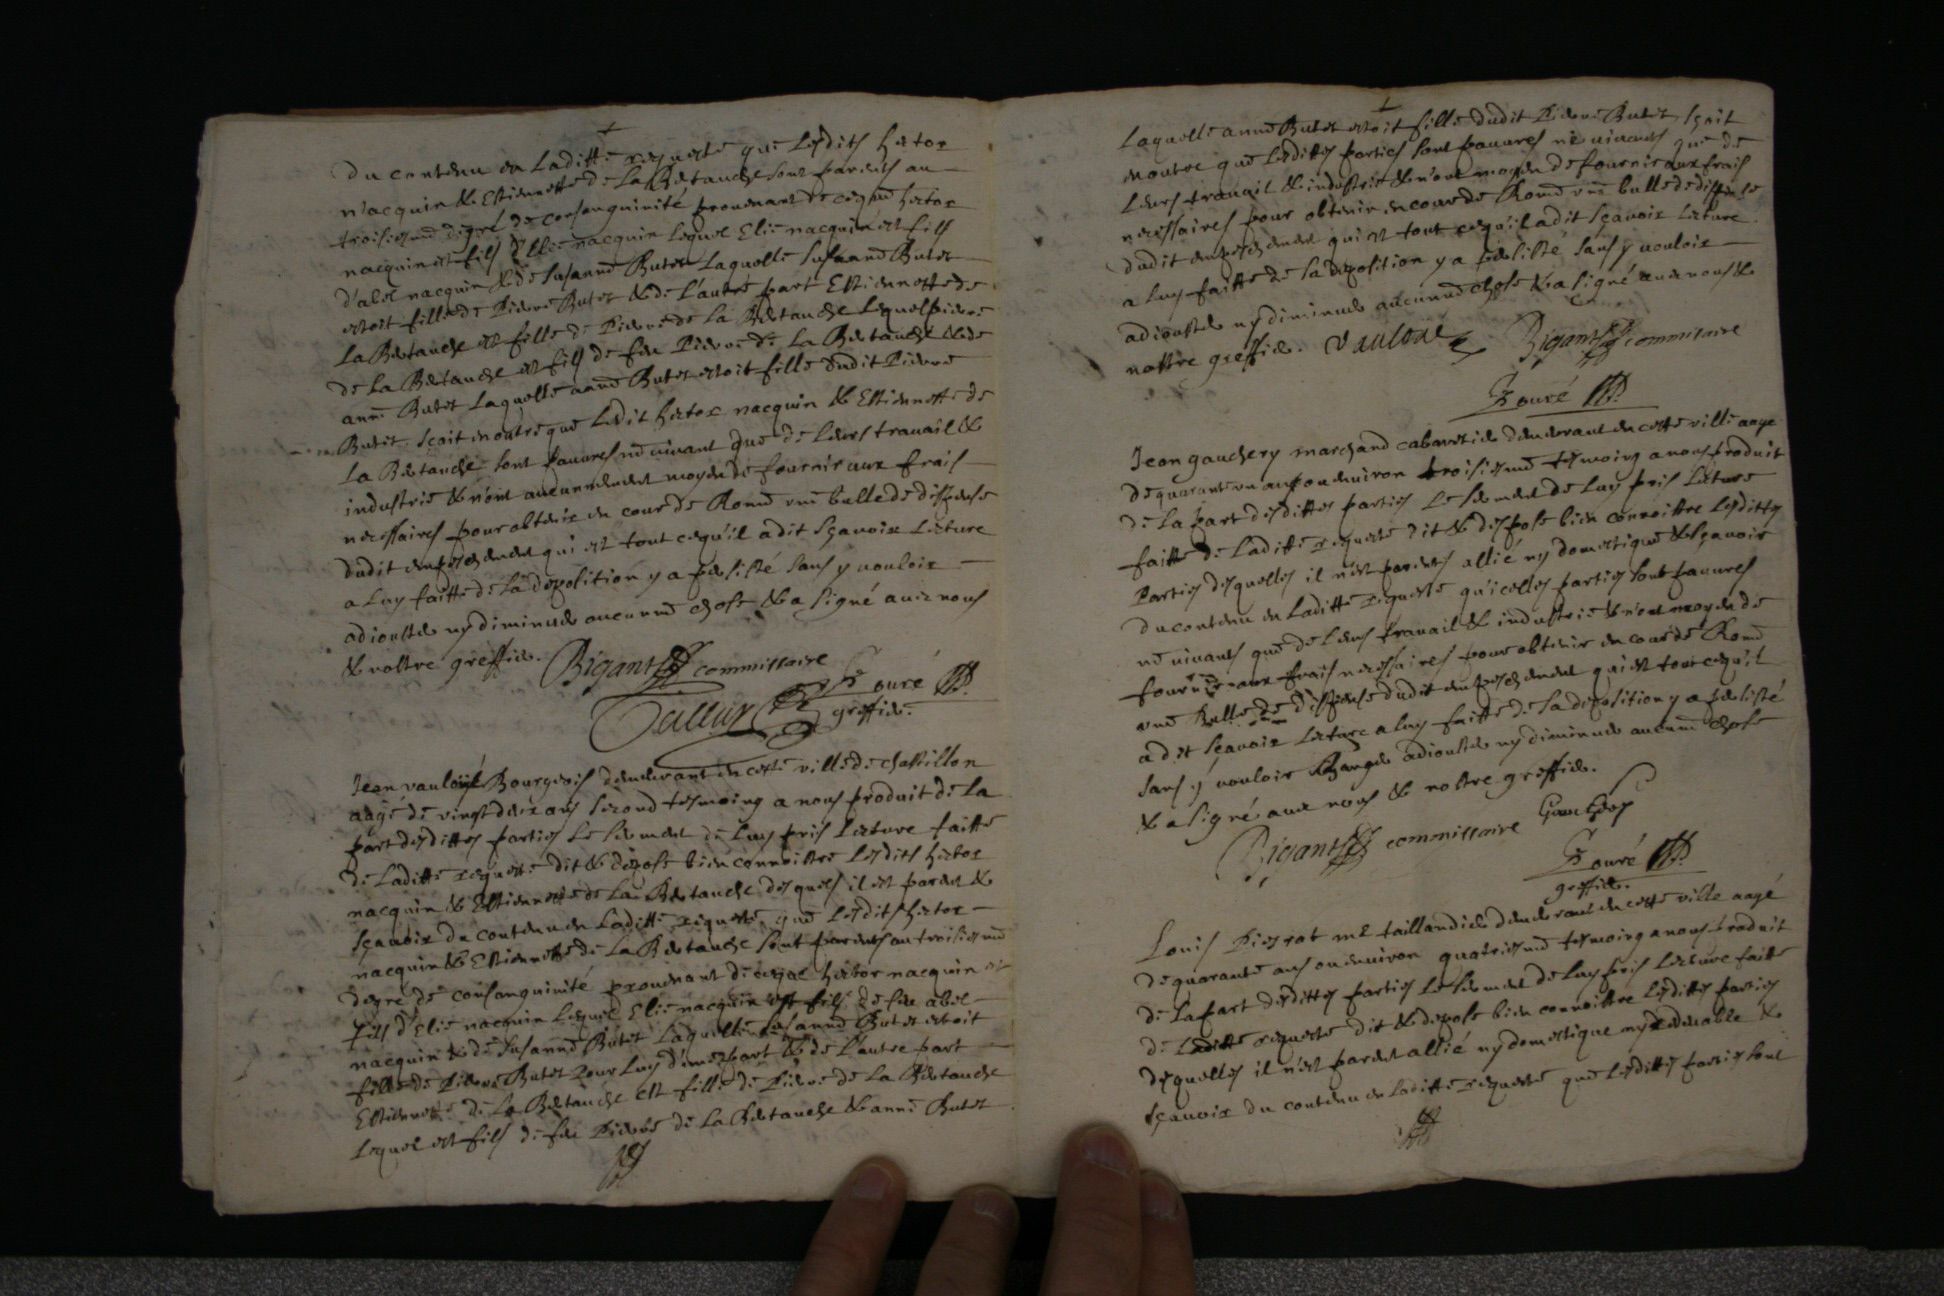 du contenu en laditte requeste que lesdits hector
nacquin & Estiennette de la Bretauche sont parents au
troisiesme degré de consanguinité provenant de ce que hector
nacquin est fils d'Elie nacquin lequel Elie nacquin est fils
d'abel nacquin & de Susanne Butet laquelle Susanne Butet
estoit fille de Pierre Butet & de l'autre part Estiennette de
la Bretauche est fille de Pierre de la Bretauche lequel pierre
de la Bretauche est fils de feu Pierre de la Bretauche & de
anne Butet laquelle anne Butet estoit fille dudit Pierre
Butet, sçait en outre que ledit hector nacquin & Estiennette de
la Bretauche sont pauvres ne vivant que de leurs travail &
industrie & n'ont aucunement moyen de fournir aux frais
necessaires pour obtenir en cour de Rome une bulle de dispense
dudit empeschement qui est tout ce qu'il a dit sçavoir lecture
a luy faitte de sa deposition y a persisté sans y vouloir
adiouster ny diminuer aucunne chose & a signé avec nous
& nostre greffier. Bigant commissaire
Fouré
greffier.
Jean vauloüé Bourgeois demeurant en cette ville de chastillon
aagé de vingt deux ans second tesmoing a nous produit de la
part desdittes parties le serment de luy pris lecture faitte
de laditte requeste dit & depose bien connoistre lesdits hector
nacquin & Estiennette de la Bretauche desquels il est parent &
sçavoir du contenu en laditte requeste, que lesdits hector
nacquin & Estiennette de la Bretauche sont parents au troisiesme
degré de consanguinité provenant de ce que hector nacquin est
fils d'Elie nacquin lequel Elie nacquin est fils de feu abel
nacquin & de Susanne Butet laquelle Susanne Butet estoit
fille de Pierre Butet pour luy d'une part & de l'autre part
Estiennette de la Bretauche est fille de Pierre de la Bretauche
lequel est fils de feu Pierre de la Bretauche & anne Butet
laquelle anne Butet estoit fille dudit Pierre Butet, sçait
en outre que lesdittes parties sont pauvres ne vivants que de
leurs travail & industrie & n'ont moyen de fournir aux frais
necessaires pour obtenir en cour de Rome une bulle de dispense
dudit empeschement qui est tout ce qu'il a dit sçavoir lecture
a luy faitte de sa deposition y a persisté sans y vouloir
adiouster ny diminuer aucunne chose & a signé avec nous &
nostre greffier. Bigant commissaire
Fouré
Jean gauchery marchand cabaretier demeurant en cette ville aagé
de quarante un ans ou environ troisiesme tesmoing a nous produit
de la part desdittes parties le serment de luy pris lecture
faitte de laditte requeste dit & despose bien connoistre lesdittes
Parties desquelles il n'est parent allié ny domestique & sçavoir
du contenu en laditte requeste qu'icelles parties sont pauvres
ne vivants que de leurs travail & industrie & n'ont moyen de
fournir aux frais necessaires pour obtenir en cour de Rome
une Bulle de dispense dudit empeschement qui est tout ce qu'il
a dit sçavoir lecture a luy faitte de sa deposition y a persisté
sans y vouloir changer adiouster ny diminuer aucune chose
& a signé avec nous & nostre greffier.
Bigant commissaire
Fouré
greffier.
Louis me taillandier demeurant en cette ville aagé
de quarante ans ou environ quatriesme tesmoing a nous produit
de la part desdittes parties le serment de luy pris lecture faitte
de laditte requeste dit & depose bien connoistre lesdittes parties
desquelles il n'est parent allié ny domestique ny redevable &
sçavoir du contenu en laditte requeste que lesdittes parties sont